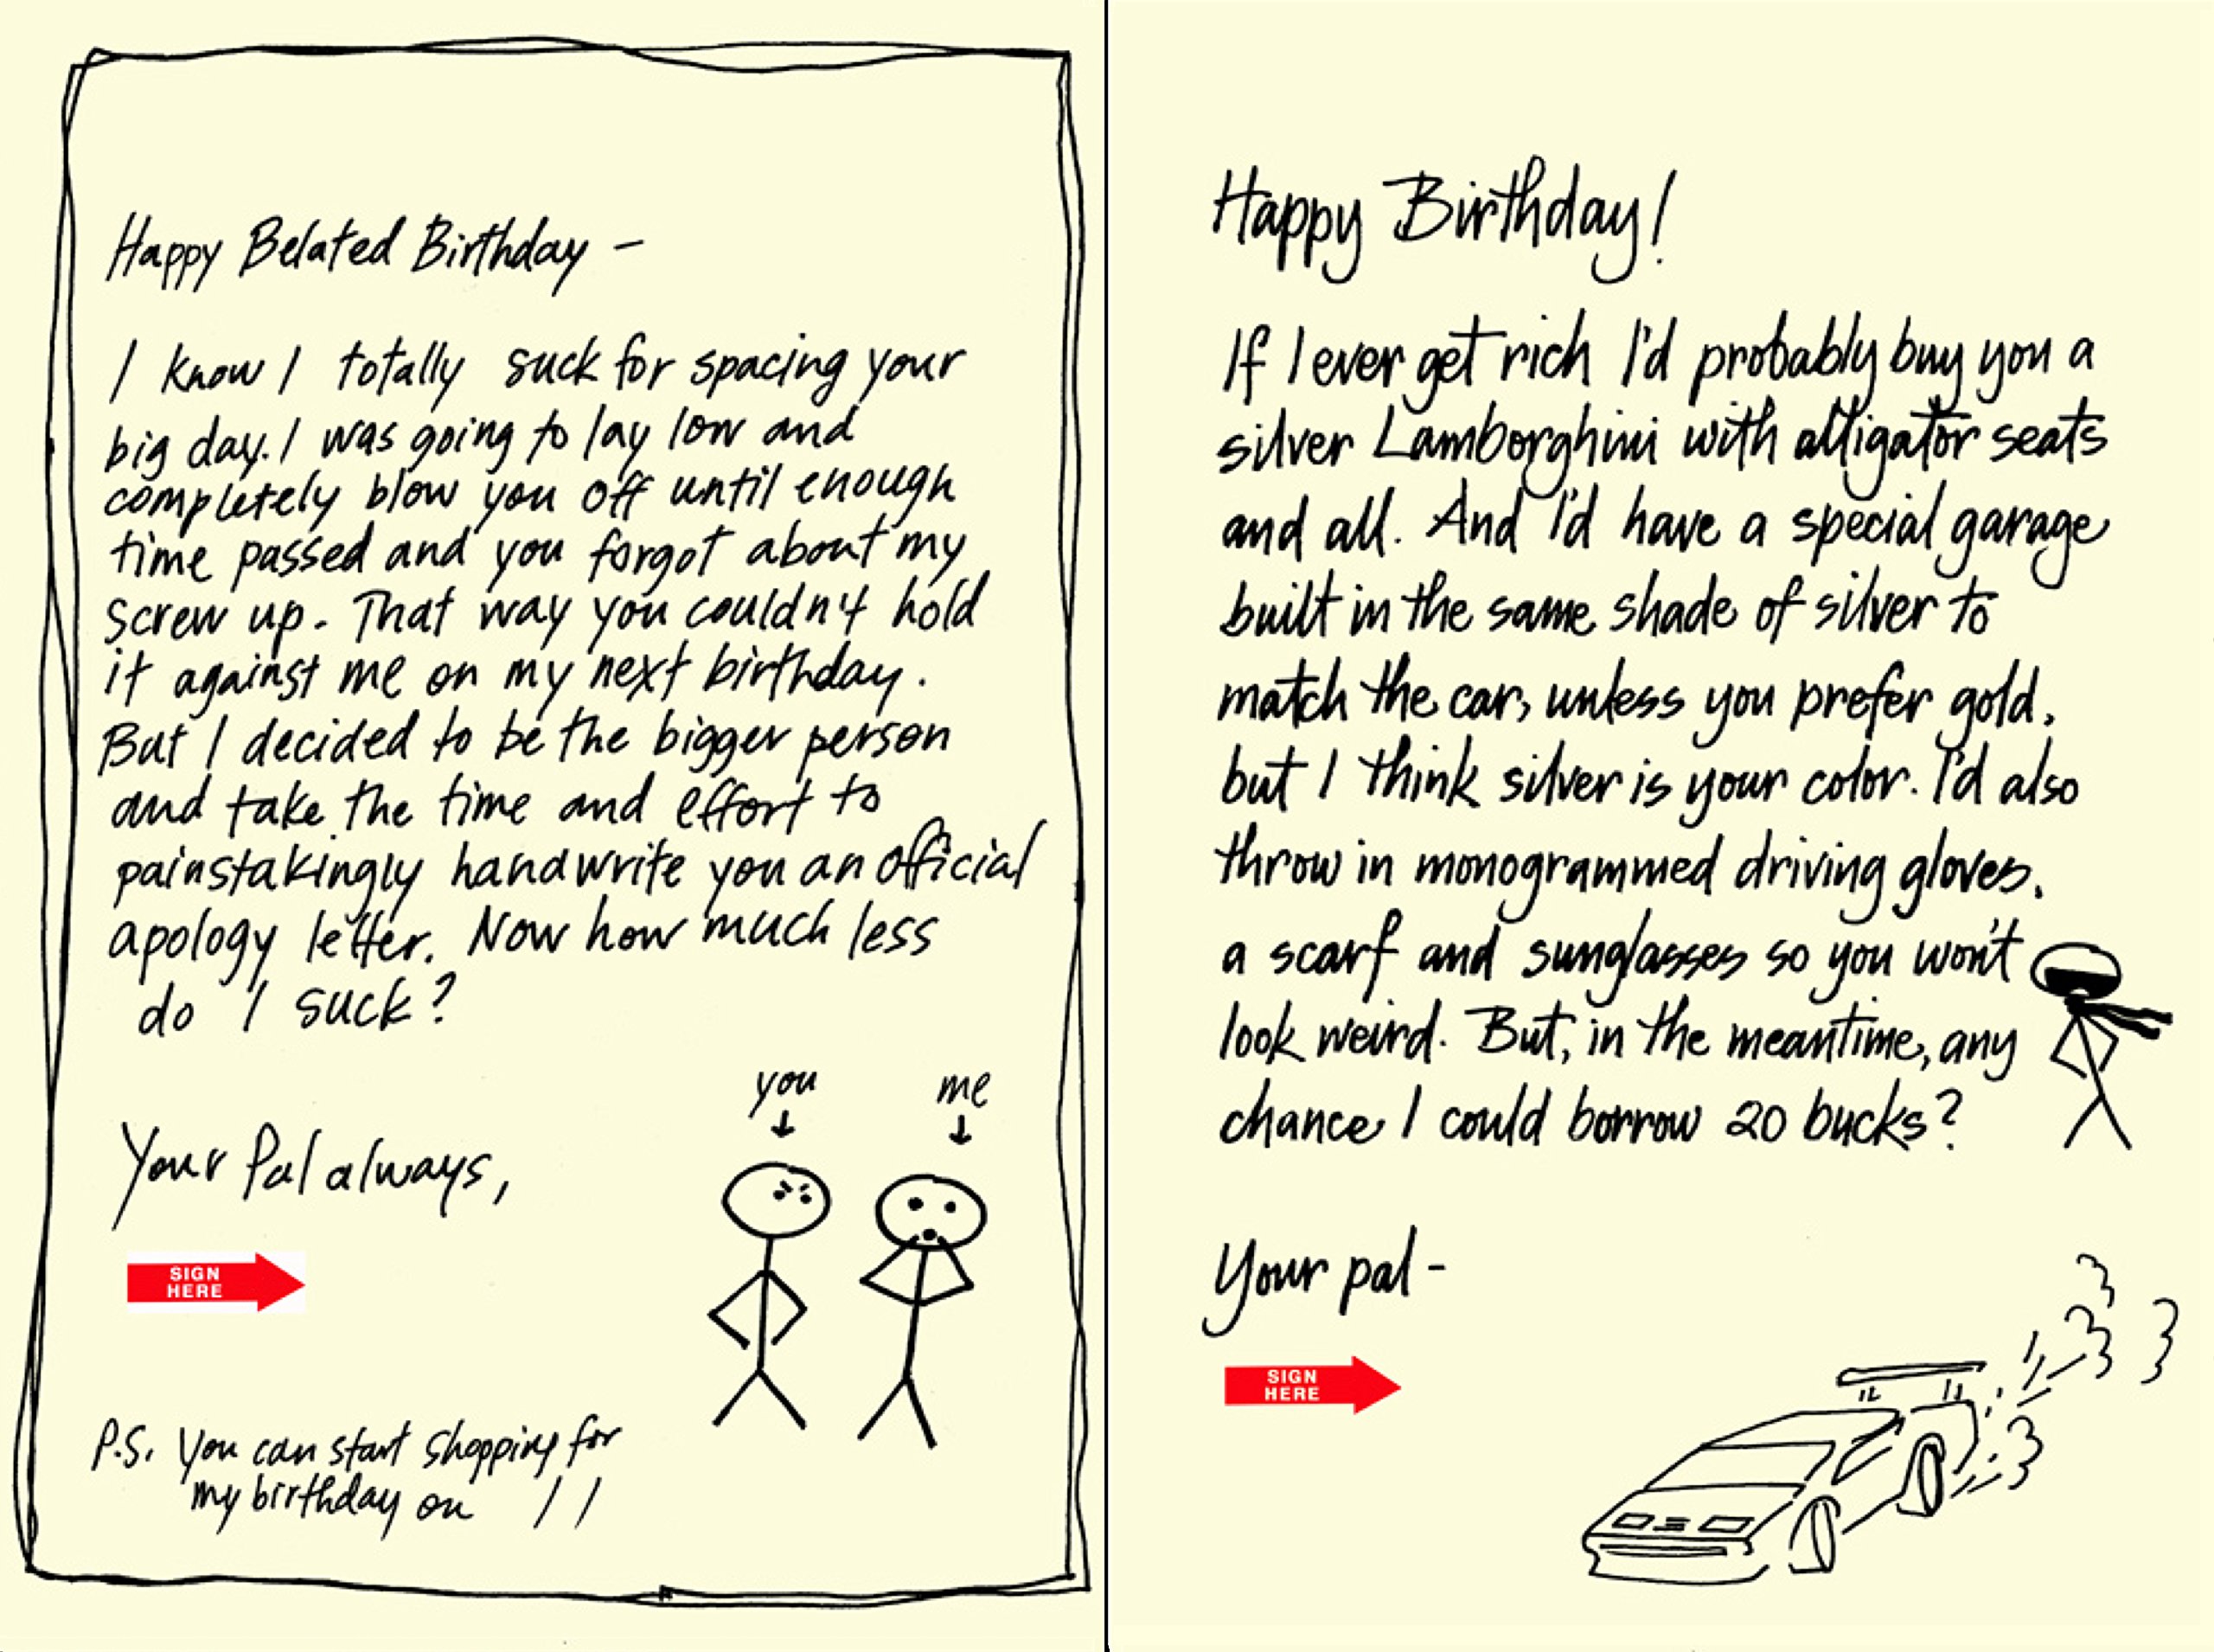 Happy Belated Birthday –
I know I totally suck for spacing your
big day. I was going to lay low and
completely blow you off until enough
time passed and you forgot about my
screw up. That way you couldn't hold
it against me on my next birthday.
But I decided to be the bigger person
and take the time and effort to
painstakingly handwrite you an official
apology letter. Now how much less
do I suck?
you me
Your Pal always,
SIGN
HERE
P.S. You can start shopping for
my birthday on / /
Happy Birthday!
If I ever get rich I'd probably buy you a
silver Lamborghini with alligator seats
and all. And I'd have a special garage
built in the same shade of silver to
match the car, unless you prefer gold,
but I think silver is your color. I'd also
throw in monogrammed driving gloves,
a scarf and sunglasses so you won't
look weird. But, in the meantime, any
chance I could borrow 20 bucks?
Your pal -
SIGN
HERE